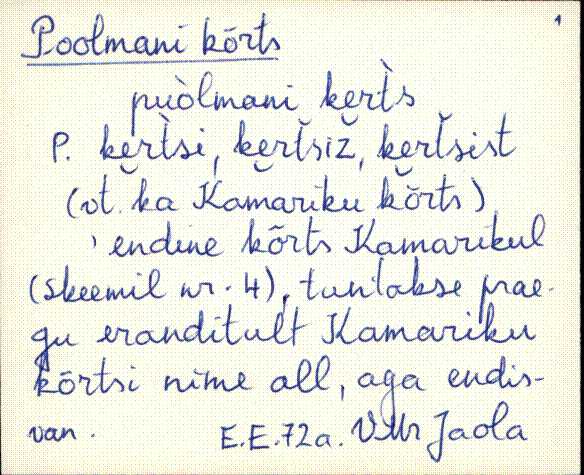 1
Poolmani kõrts
puòlmani ke̮rt̀s
P. ke̮rt̀si, ke̮rtsiz̆, ke̮rtsist
(vt. ka Kamariku kõrts)
' endine kõrts Kamarikul
(skeemil nr. 4), tuntakse prae-
gu eranditult Kamariku
kõrtsi nime all, aga endis-
van.
E.E.72a. VMr Jaola